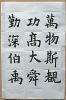 萬物斯覩
功高大舜
勤深伯禹